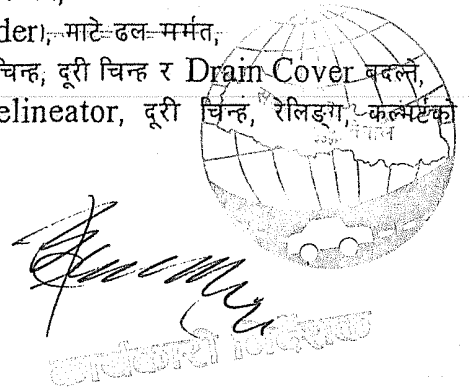 der), माटे ढल मर्मत,
चिन्ह, दूरी चिन्ह र Drain Cover बदल्ने,
elineator, दूरी चिन्ह, रेलिङ्ग, कल्भर्टको
नेपाल
कार्यकारी निर्देशक